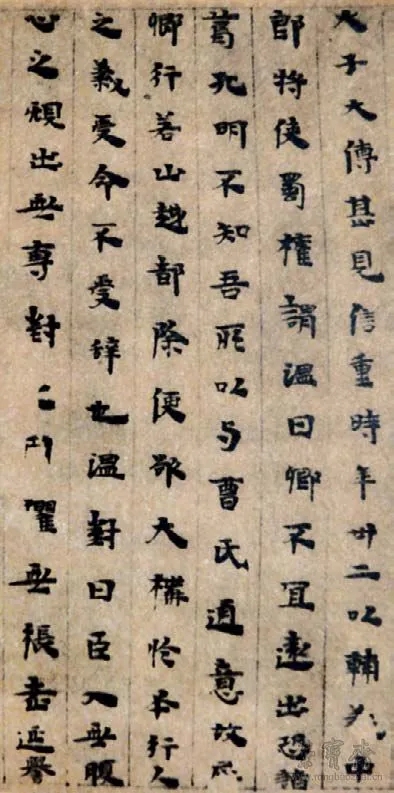 大子大傅甚見信重時年卅二以輔義
郎將使蜀權謂溫曰卿不宜遠出恐諸
葛孔明不知吾所以与曹氏通意故
卿行若山越都除便欲大構於丕行人
之義受命不受辞也溫對曰臣入無腹
心之規出無專對之懼無張老延譽
www.rongbaozhai.cn